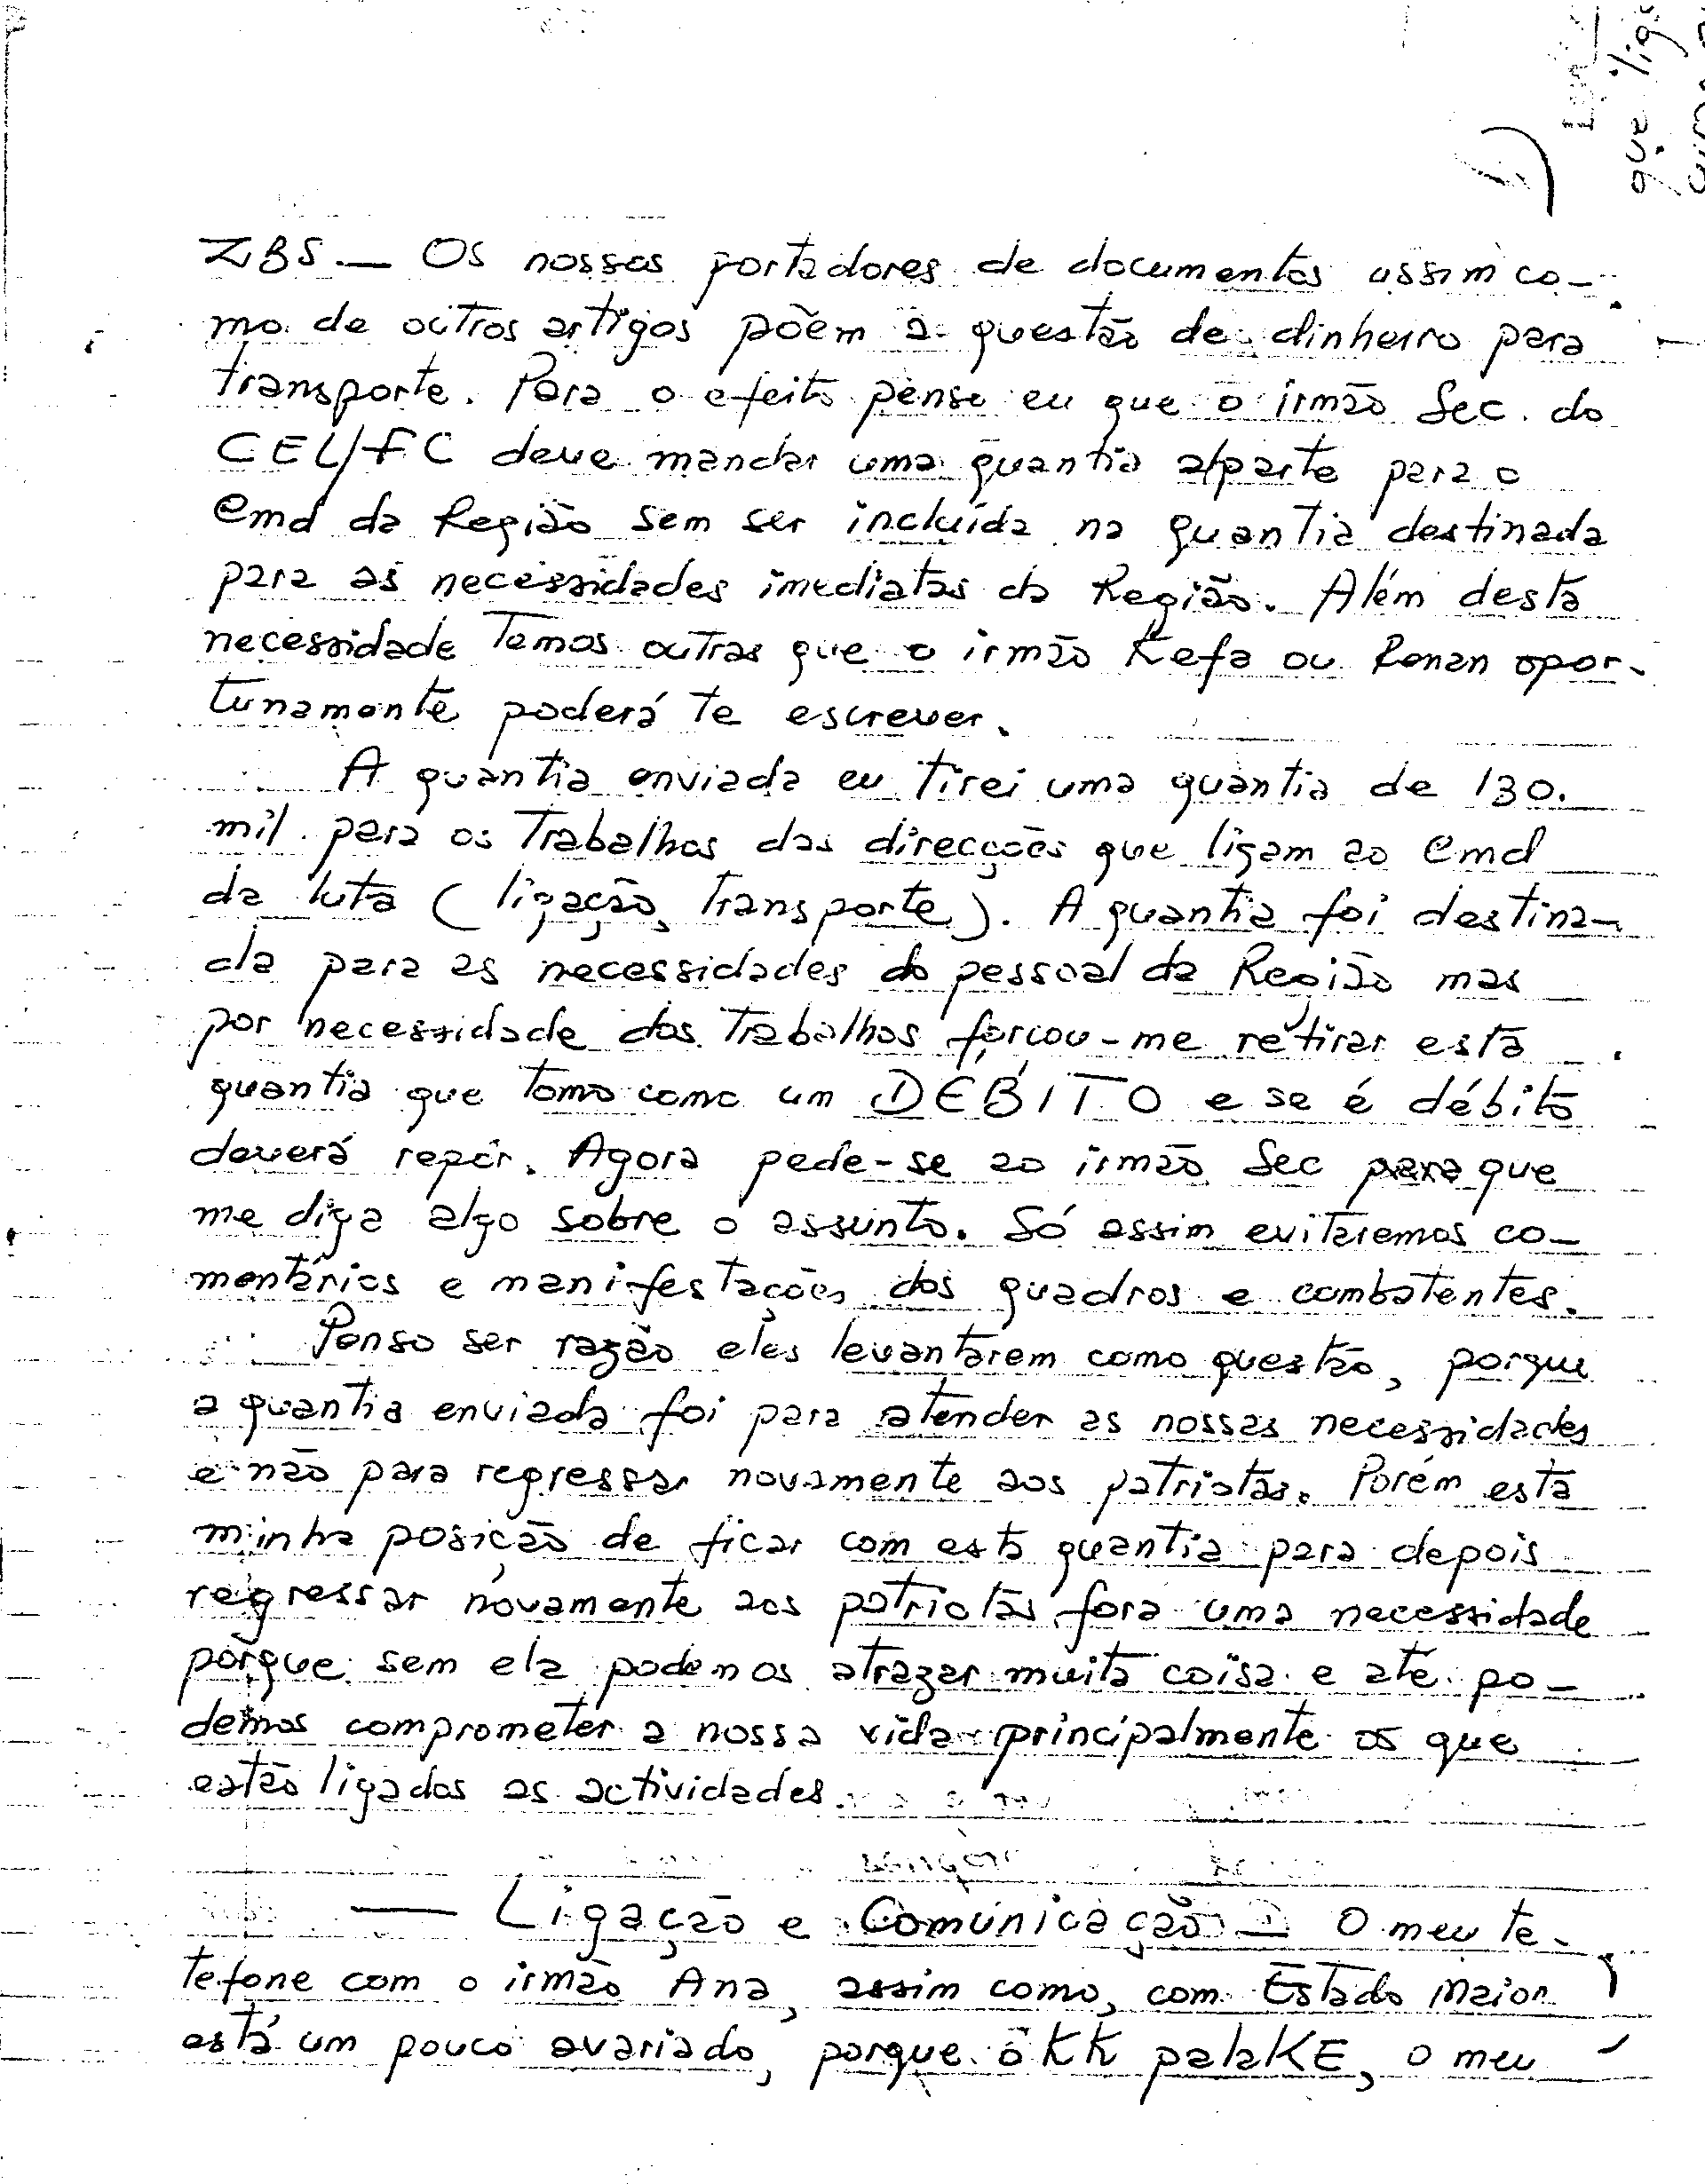 que liga
ZBS. — Os nossos portadores de documentos assim co-
mo de outros artigos põem a questão de dinheiro para
transporte. Para o efeito penso eu que o irmão Sec. do
CEL/FC deve mandar uma quantia a/parte para o
Cmd da Região sem ser incluída na quantia destinada
para as necessidades imediatas da Região. Além desta
necessidade Temos outras que o irmão Kefa ou Ronan opor-
tunamente poderá te escrever.
A quantia enviada eu tirei uma quantia de 130.
mil para os Trabalhos das direcções que ligam ao Cmd
da luta (ligação, transporte). A quantia foi destina-
da para as necessidades do pessoal da Região mas
por necessidade dos Trabalhos forçou-me retirar esta
quantia que Tomo como um DÉBITO e se é débito
deverá repôr. Agora pede-se ao irmão Sec para que
me diga algo sobre o assunto. Só assim evitaremos co-
mentários e manifestações dos quadros e combatentes.
Penso ser razão eles levantarem como questão, porque
a quantia enviada foi para atender as nossas necessidades
e não para regressar novamente aos patriotas. Porém esta
minha posição de ficar com esta quantia para depois
regressar novamente aos patriotas fora uma necessidade
porque sem ela podemos atrazar muita coisa e até po-
demos comprometer a nossa vida principalmente os que
estão ligados as actividades.
— Ligação e Comunicação — O meu te-
tefone com o irmão Ana, assim como, com Estado Maior
está um pouco avariado, porque o KK palaKE, o meu